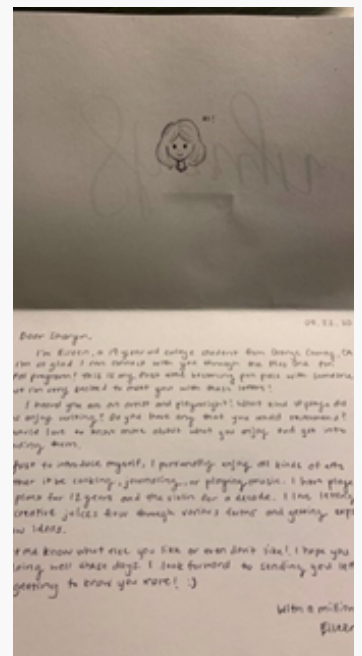 Hi!
Dear Sharyn,
I'm Eileen, a 19 year old college student from Orange County, CA
I'm so glad I can connect with you through the
Pal program! This is my first time becoming pen pals with someone,
I'm very excited to meet you with these letters!
I heard you are an artist and playwright! What kind of plays do
enjoy writing? Do you have any that you would recommend?
would love to know more about what you enjoy and get into
them.
Just to introduce myself, I personally enjoy all kinds of arts
it be cooking, journaling, or playing music. I have played
piano for 12 years and the violin for a decade. I love letting
creative juices flow through various forms and getting
ideas.
me know what else you like or even don't like! I hope you
doing well these days. I look forward to sending you
getting to know you more! :)
With a million
Eileen